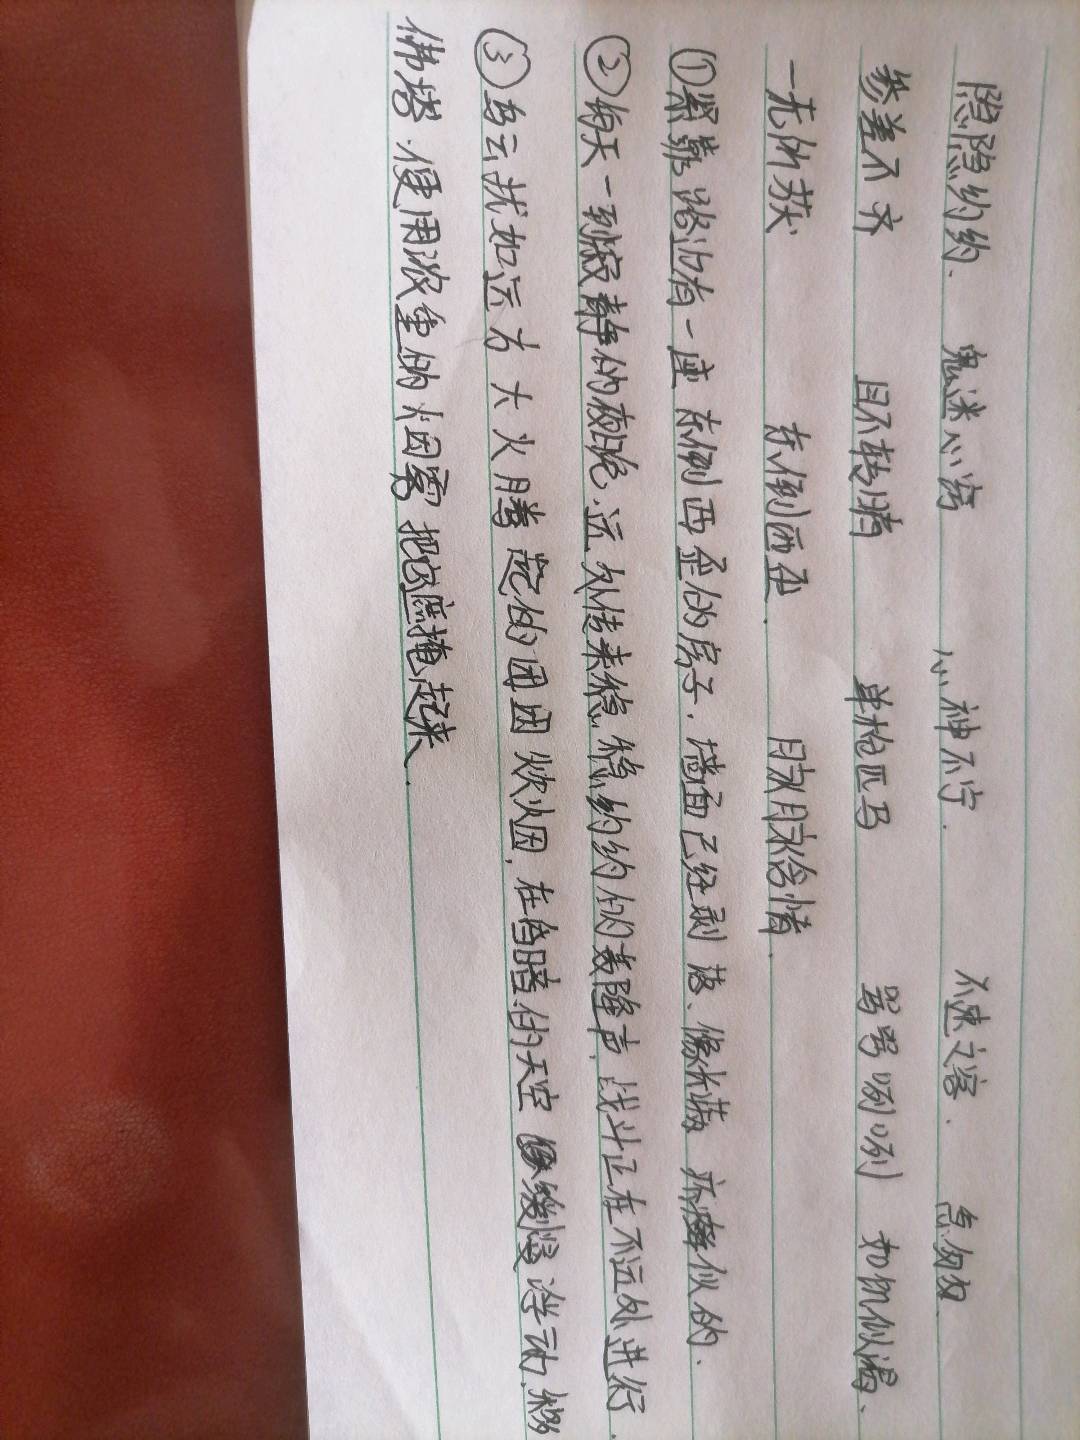 隐隐约约、 鬼迷心窍 心神不宁. 不速之客. 急匆匆.
参差不齐 目不转睛 单枪匹马 骂骂咧咧 如饥似渴、
一无所获 东倒西歪. 脉脉含情.
①紧靠路边有一座东倒西歪的房子,墙面已经剥落、像长满疥癣似的.
②每天一到寂静的夜晚.远处传来稳稳约约的轰隆声,战斗正在不远处进行.
③乌云犹如远方大火腾起的团团炊烟,在昏暗的天空缓缓浮动,移
佛塔.便用浓重的烟雾把它遮掩起来.